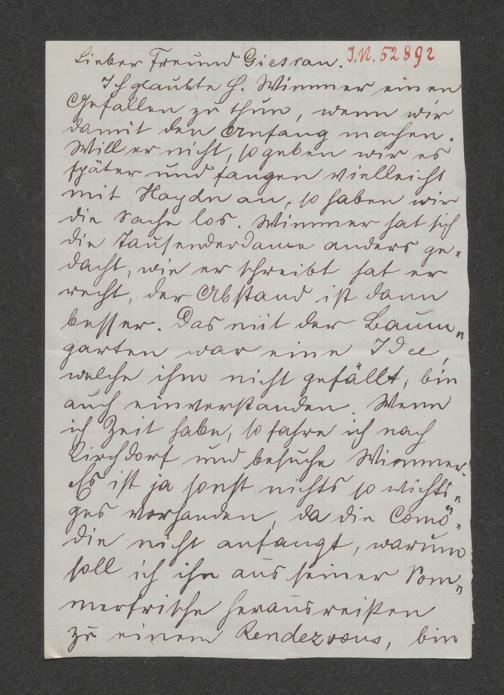 Lieber Freund Giesrau. I.N. 52892
Ich glaubte H. Wimmer einen
Gefallen zu thun, wenn wir
damit den Anfang machen.
Will er nicht, so geben wir es
später und fangen vielleicht
mit Haydn an, so haben wir
die Sache los. Wimmer hat sich
die Tausenderdame anders ge„
dacht, wie er schreibt hat er
recht, der Abstand ist dann
besser. Das mit der Baum„
garten war eine Idee,
welche ihm nicht gefällt, bin
auch einverstanden. Wenn
ich Zeit habe, so fahre ich nach
Kirchdorf und besuche Wimmer.
Es ist ja sonst nichts so wichti„
ges vorhanden, da die Comö„
die nicht anfangt, warum
soll ich ihn aus seiner Som„
merfrische herausreißen
zu einem Rendezvous, bin